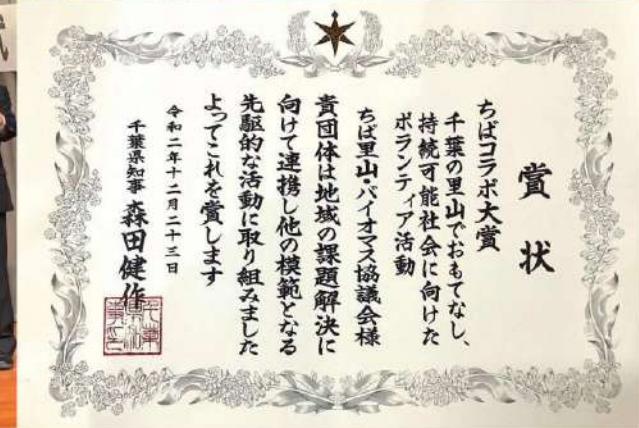 賞状
ちばコラボ大賞
千葉の里山でおもてなし、
持続可能社会に向けた
ボランティア活動
ちば里山・バイオマス協議会様
貴団体は地域の課題解決に
向けて連携し他の模範となる
先駆的な活動に取り組みました
よってこれを賞します
令和二年十二月二十三日
千葉県知事 森田健作